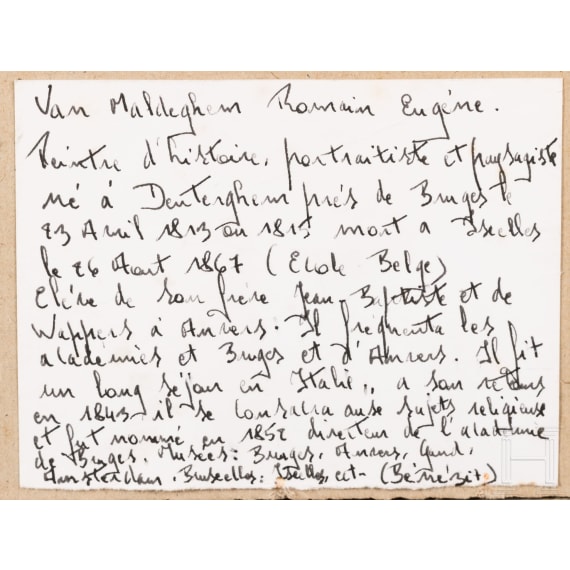 Van Maldeghem Romain Eugéne.
Peintre d'histoire, portraitiste et paysagiste
né à Denterghem prés de Bruges le
23 Avril 1813 ou 1815 mort a Ixelles
le 26 Aout 1867 (Ecole Belge)
Eléve de son frére Jean-Baptiste et de
Wappers à Anvers. Il fréquenta les
academies et Bruges et d'Anvers. Il fit
un long séjour en Italie, a son retour
en 1843 il se consacra aux sujets religieuse
et fut nommé en 1852 directeur de l'academie
de Bruges. Musées: Bruges, Anvers, Gand,
Amsterdam. Bruxelles: Ixelles, ect- (Bénézit)
H